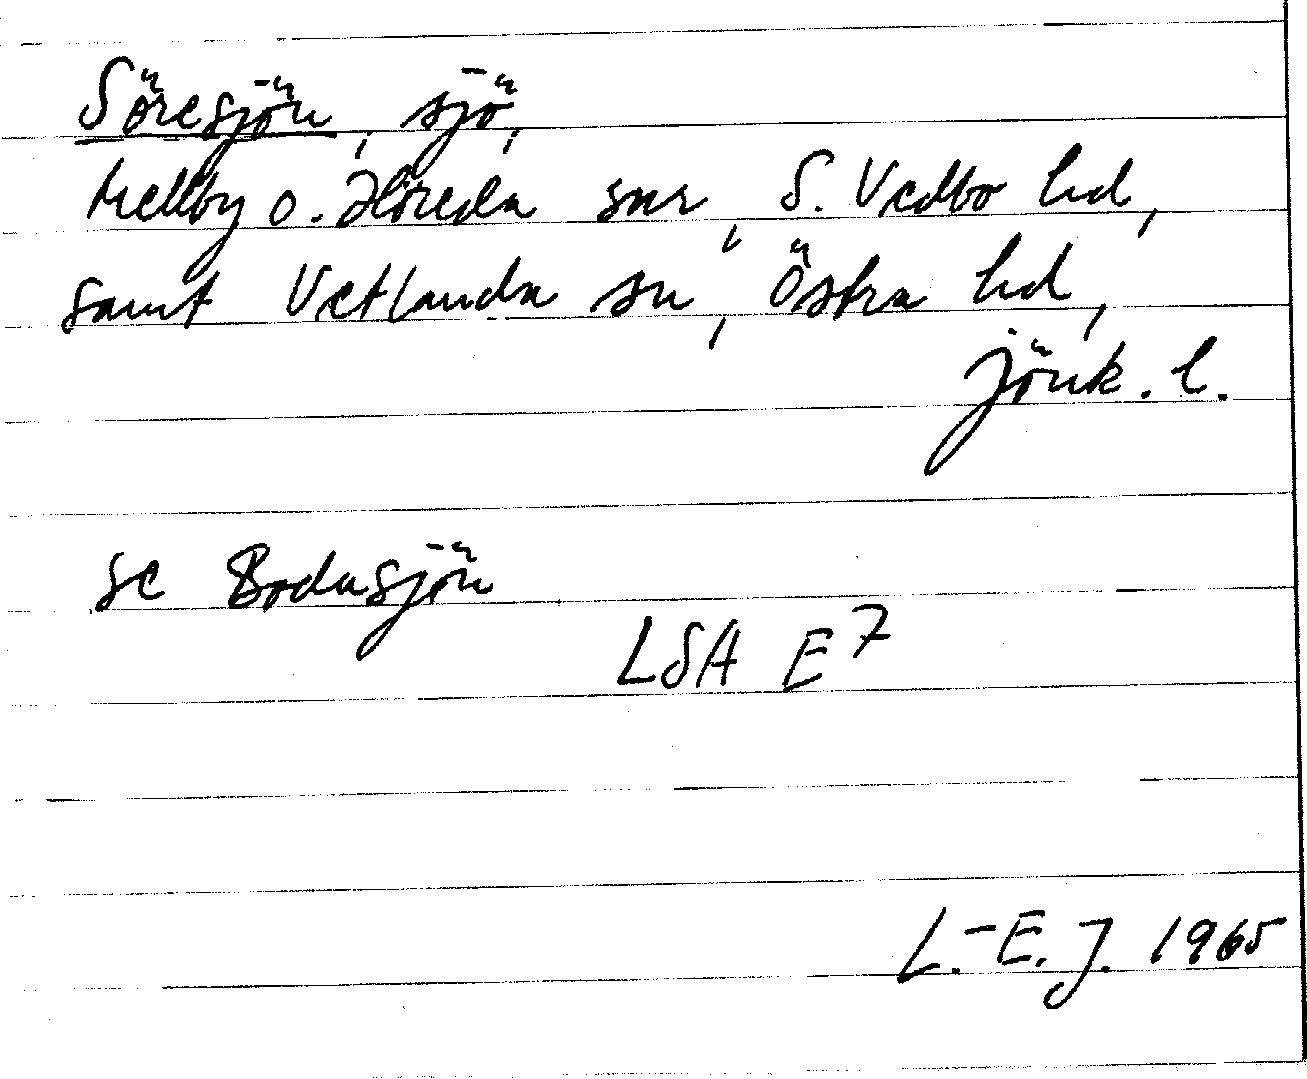 Söresjön, sjö,
Mellby o. Alseda snr, S. Vedbo hd,
samt Vetlanda sn, Östra hd,
Jönk. l.
se Bodasjön
LSA E7
L.-E. J. 1965